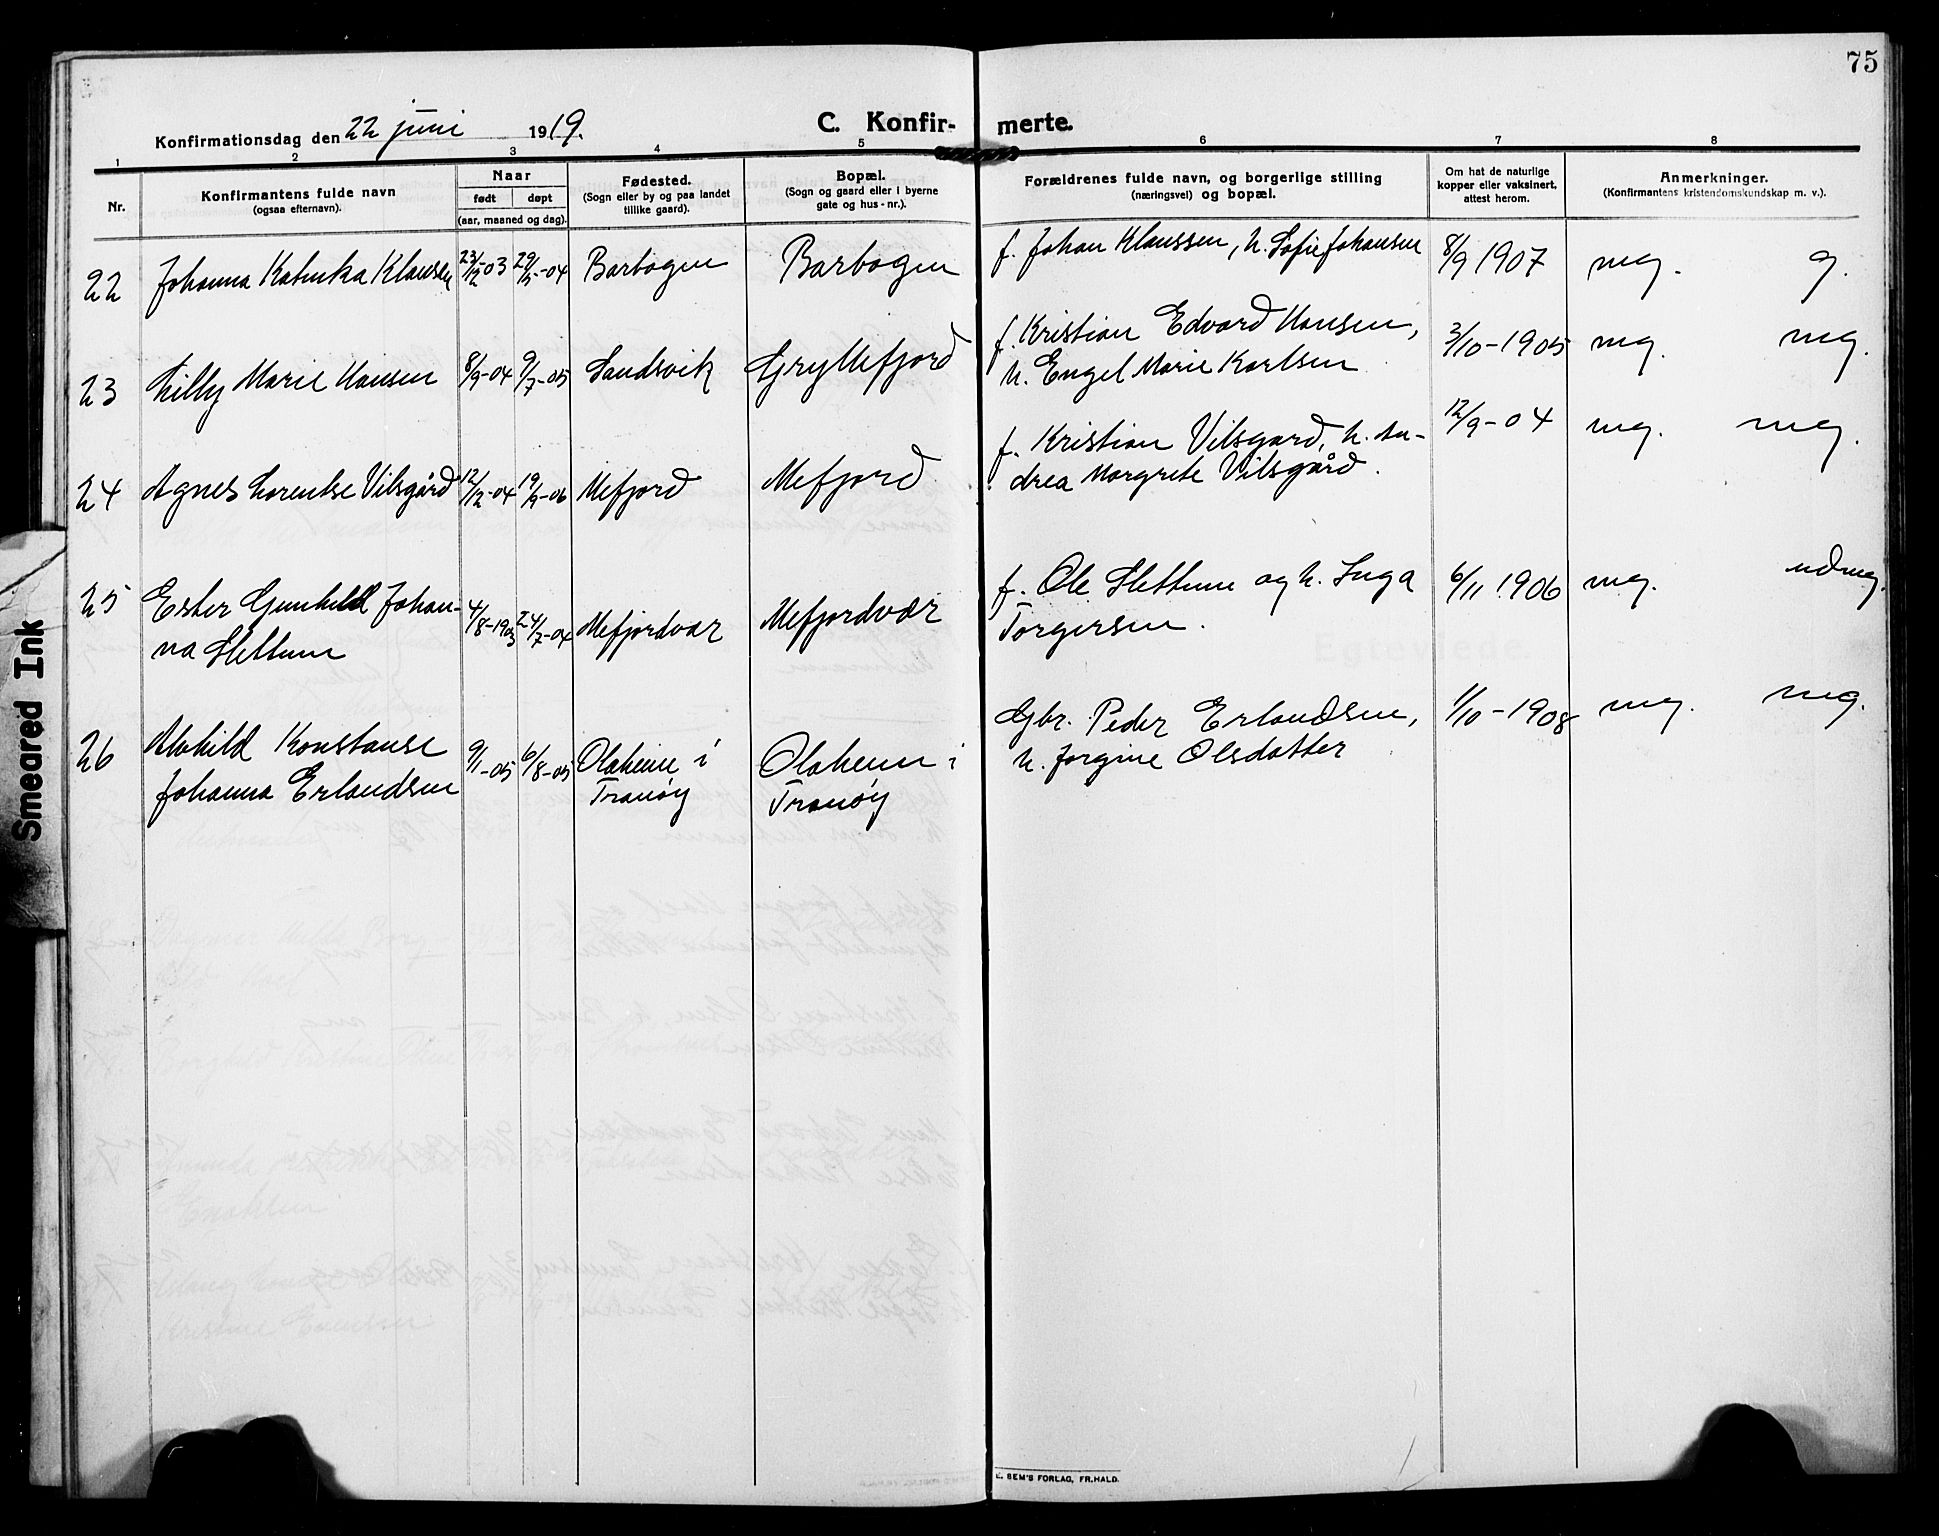 75
Konfirmationsdag den 22 juni 1919.
C. Konfir- merte.
1 2 3 4 5 6 7 8
Nr.
Konfirmantens fulde navn
(ogsaa efternavn).
Naar
født døpt
(aar, maaned og dag).
Fødested.
(Sogn eller by og paa landet
tillike gaard).
Bopæl.
(Sogn og gaard eller i byerne
gate og hus-nr.).
Forældrenes fulde navn, og borgerlige stilling
(næringsvei) og bopæl.
Om hat de naturlige
kopper eller vaksinert,
attest herom.
Anmerkninger.
(Konfirmantens kristendomskundskap m. v.).
22 Johanna Katinka Klausen 23/12-03 29/5-04 Barbogen Barbogen f. Johan Klaussen, h. Sofie Johansen 8/9 1907 mg. g.
23 Lilly Marie Hansen 8/9-04 9/7-05 Sandsvik Gryllefjord f. Kristian Edvard Hansen,
h. Engel Marie Karlsen 3/10-1905 mg. mg.
24 Agnes Lorentse Vilsgård 12/12-04 19/9-06 Mefjord Mefjord f. Kristian Vilsgard, h. An-
drea Margrete Vilsgård. 12/9-04 mg. mg.
25 Ester Gunhild Johan-
na Slettum 4/8-1903 24/7-04 Mefjordvær Mefjordvær f. Ole Slettum og h. Inga
Torgersen. 6/11 1906 mg. udmg.
26 Alvhild Konstanse
Johanna Erlandsen 9/1-05 6/8-05 Olaheim i
Tranøy Olaheim i
Tranøy Gbr. Peder Erlandsen,
h. Jorgine Olsdatter 1/10-1908 mg. mg.
E. SEM'S FORLAG, FR.HALD.
Smeared Ink